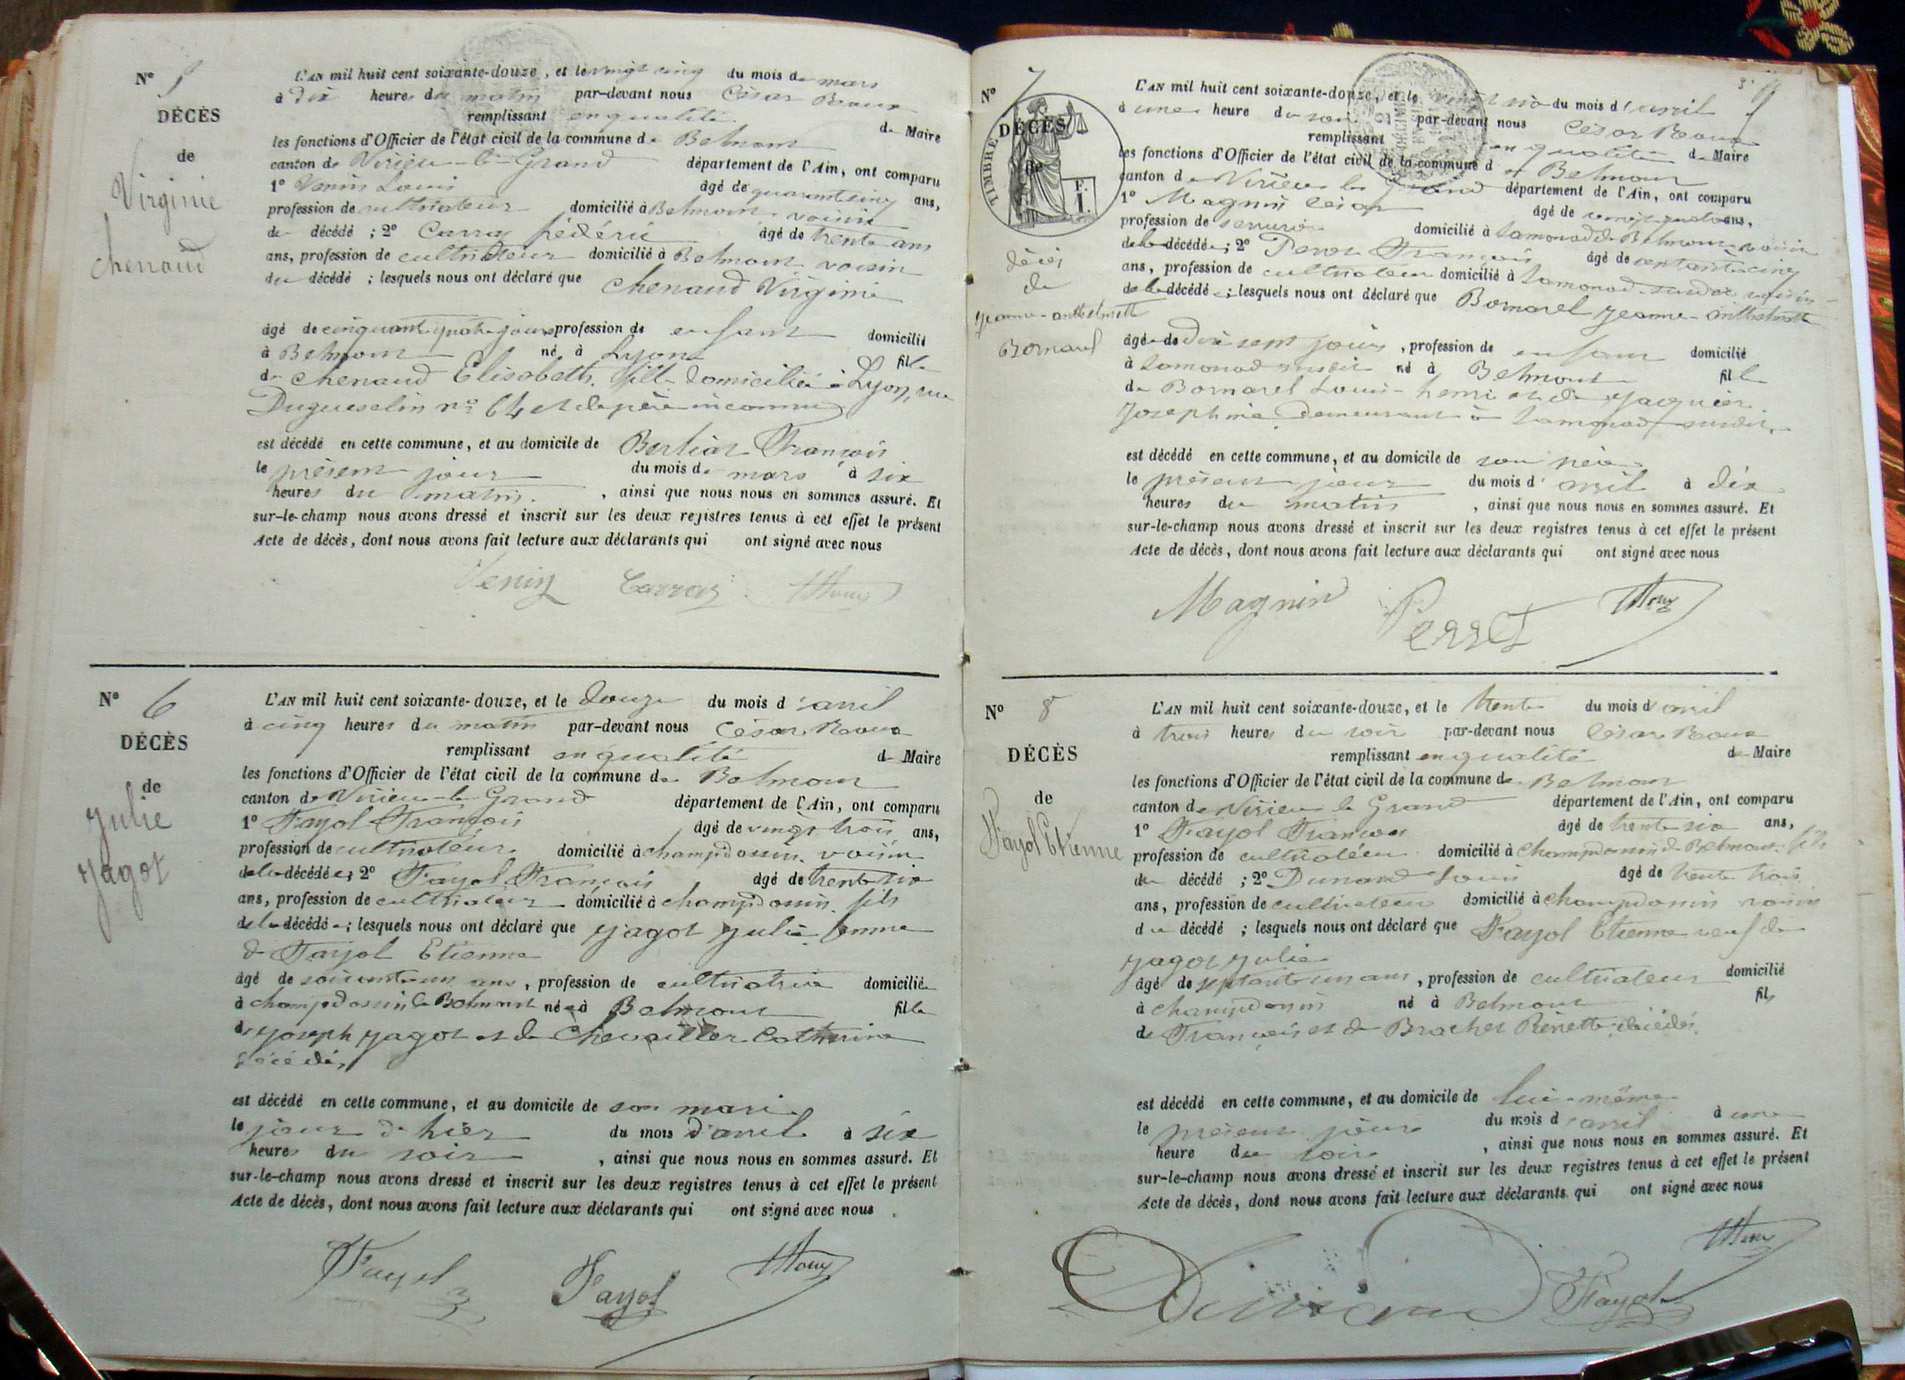 Nº 5
DÉCÈS
de
Virginie
Chenaud
L'AN mil huit cent soixante-douze, et le vingt cinq du mois de mars
à dix heures du matin par-devant nous César Roux
remplissant en qualité de Maire
les fonctions d'Officier de l'état civil de la commune de Belmont
canton de Virieu-le-Grand département de l'Ain, ont comparu
1º Venin Louis âgé de quarante cinq ans,
profession de cultivateur domicilié à Belmont voisin
du décédé ; 2º Carraz fédéric âgé de trente ans
ans, profession de cultivateur domicilié à Belmont voisin
du décédé ; lesquels nous ont déclaré que Chenaud Virginie
âgé de cinquante quatre jours profession de enfant domicilié
à Belmont né à Lyon fille
de Chenaud Elisabeth, fille domiciliée à Lyon, rue
Duguesclin nº 64 et de père inconnu
est décédé en cette commune, et au domicile de Berliat François
le présent jour du mois de mars à six
heures du matin , ainsi que nous nous en sommes assuré. Et
sur-le-champ nous avons dressé et inscrit sur les deux registres tenus à cet effet le présent
Acte de décès, dont nous avons fait lecture aux déclarants qui ont signé avec nous
Venin Carraz Roux
Nº 6
DÉCÈS
de
Julie
Jagot
L'AN mil huit cent soixante-douze, et le douze du mois d'avril
à cinq heures du matin par-devant nous César Roux
remplissant en qualité de Maire
les fonctions d'Officier de l'état civil de la commune de Belmont
canton de Virieu-le-Grand département de l'Ain, ont comparu
1º Fayol François âgé de vingt trois ans,
profession de cultivateur domicilié à champdossin voisin
de la décédée ; 2º Fayol François âgé de trente six
ans, profession de cultivateur domicilié à champdossin fils
de la décédée ; lesquels nous ont déclaré que Jagot Julie femme
de Fayol Etienne
âgé de soixante un ans, profession de cultivatrice domiciliée
à champdossin de Belmont née à Belmont fille
de Joseph Jagot et de Chevailler Catherine
décédés
est décédé en cette commune, et au domicile de son mari
le jour de hier du mois d'avril à six
heures du soir , ainsi que nous nous en sommes assuré. Et
sur-le-champ nous avons dressé et inscrit sur les deux registres tenus à cet effet le présent
Acte de décès, dont nous avons fait lecture aux déclarants qui ont signé avec nous
Fayol Fayol Roux
Nº 7
DÉCÈS
de
TIMBRE
F.
1.
décès
de
Jeanne-anthelmette
Bornarel
L'AN mil huit cent soixante-douze, et le vingt six du mois d'avril
à une heure du soir par-devant nous César Roux
remplissant en qualité de Maire
les fonctions d'Officier de l'état civil de la commune de Belmont
canton de Virieu le Grand département de l'Ain, ont comparu
1º Magnin César âgé de vingt quatre ans,
profession de serrurier domicilié à Lamonad de Belmont voisin
de la décédée ; 2º Perret François âgé de septante cinq
ans, profession de cultivateur domicilié à Lamonad susdit voisin
de la décédée ; lesquels nous ont déclaré que Bornarel Jeanne-anthelmette
âgée de dix sept jours, profession de enfant domicilié
à Lamonad susdit né à Belmont fille
de Bornarel Louis-henri et de Jacquier
Josephine demeurant à Lamonad susdit
est décédé en cette commune, et au domicile de son père
le présent jour du mois d'avril à dix
heures du matin , ainsi que nous nous en sommes assuré. Et
sur-le-champ nous avons dressé et inscrit sur les deux registres tenus à cet effet le présent
Acte de décès, dont nous avons fait lecture aux déclarants qui ont signé avec nous
Magnin Perret Roux
Nº 8
DÉCÈS
de
Fayol Etienne
L'AN mil huit cent soixante-douze, et le trente du mois d'avril
à trois heures du soir par-devant nous César Roux
remplissant en qualité de Maire
les fonctions d'Officier de l'état civil de la commune de Belmont
canton de Virieu le Grand département de l'Ain, ont comparu
1º Fayol François âgé de trente six ans,
profession de cultivateur domicilié à champdossin de Belmont fils
du décédé ; 2º Dunand Louis âgé de trente trois
ans, profession de cultivateur domicilié à champdossin voisin
du décédé ; lesquels nous ont déclaré que Fayol Etienne veuf de
Jagot Julie
âgé de septante un ans, profession de cultivateur domicilié
à champdossin né à Belmont fils
de François et de Brachet Pierrette décédés
est décédé en cette commune, et au domicile de lui-même
le présent jour du mois d'avril à une
heure du soir , ainsi que nous nous en sommes assuré. Et
sur-le-champ nous avons dressé et inscrit sur les deux registres tenus à cet effet le présent
Acte de décès, dont nous avons fait lecture aux déclarants qui ont signé avec nous
Dunand Fayol Roux